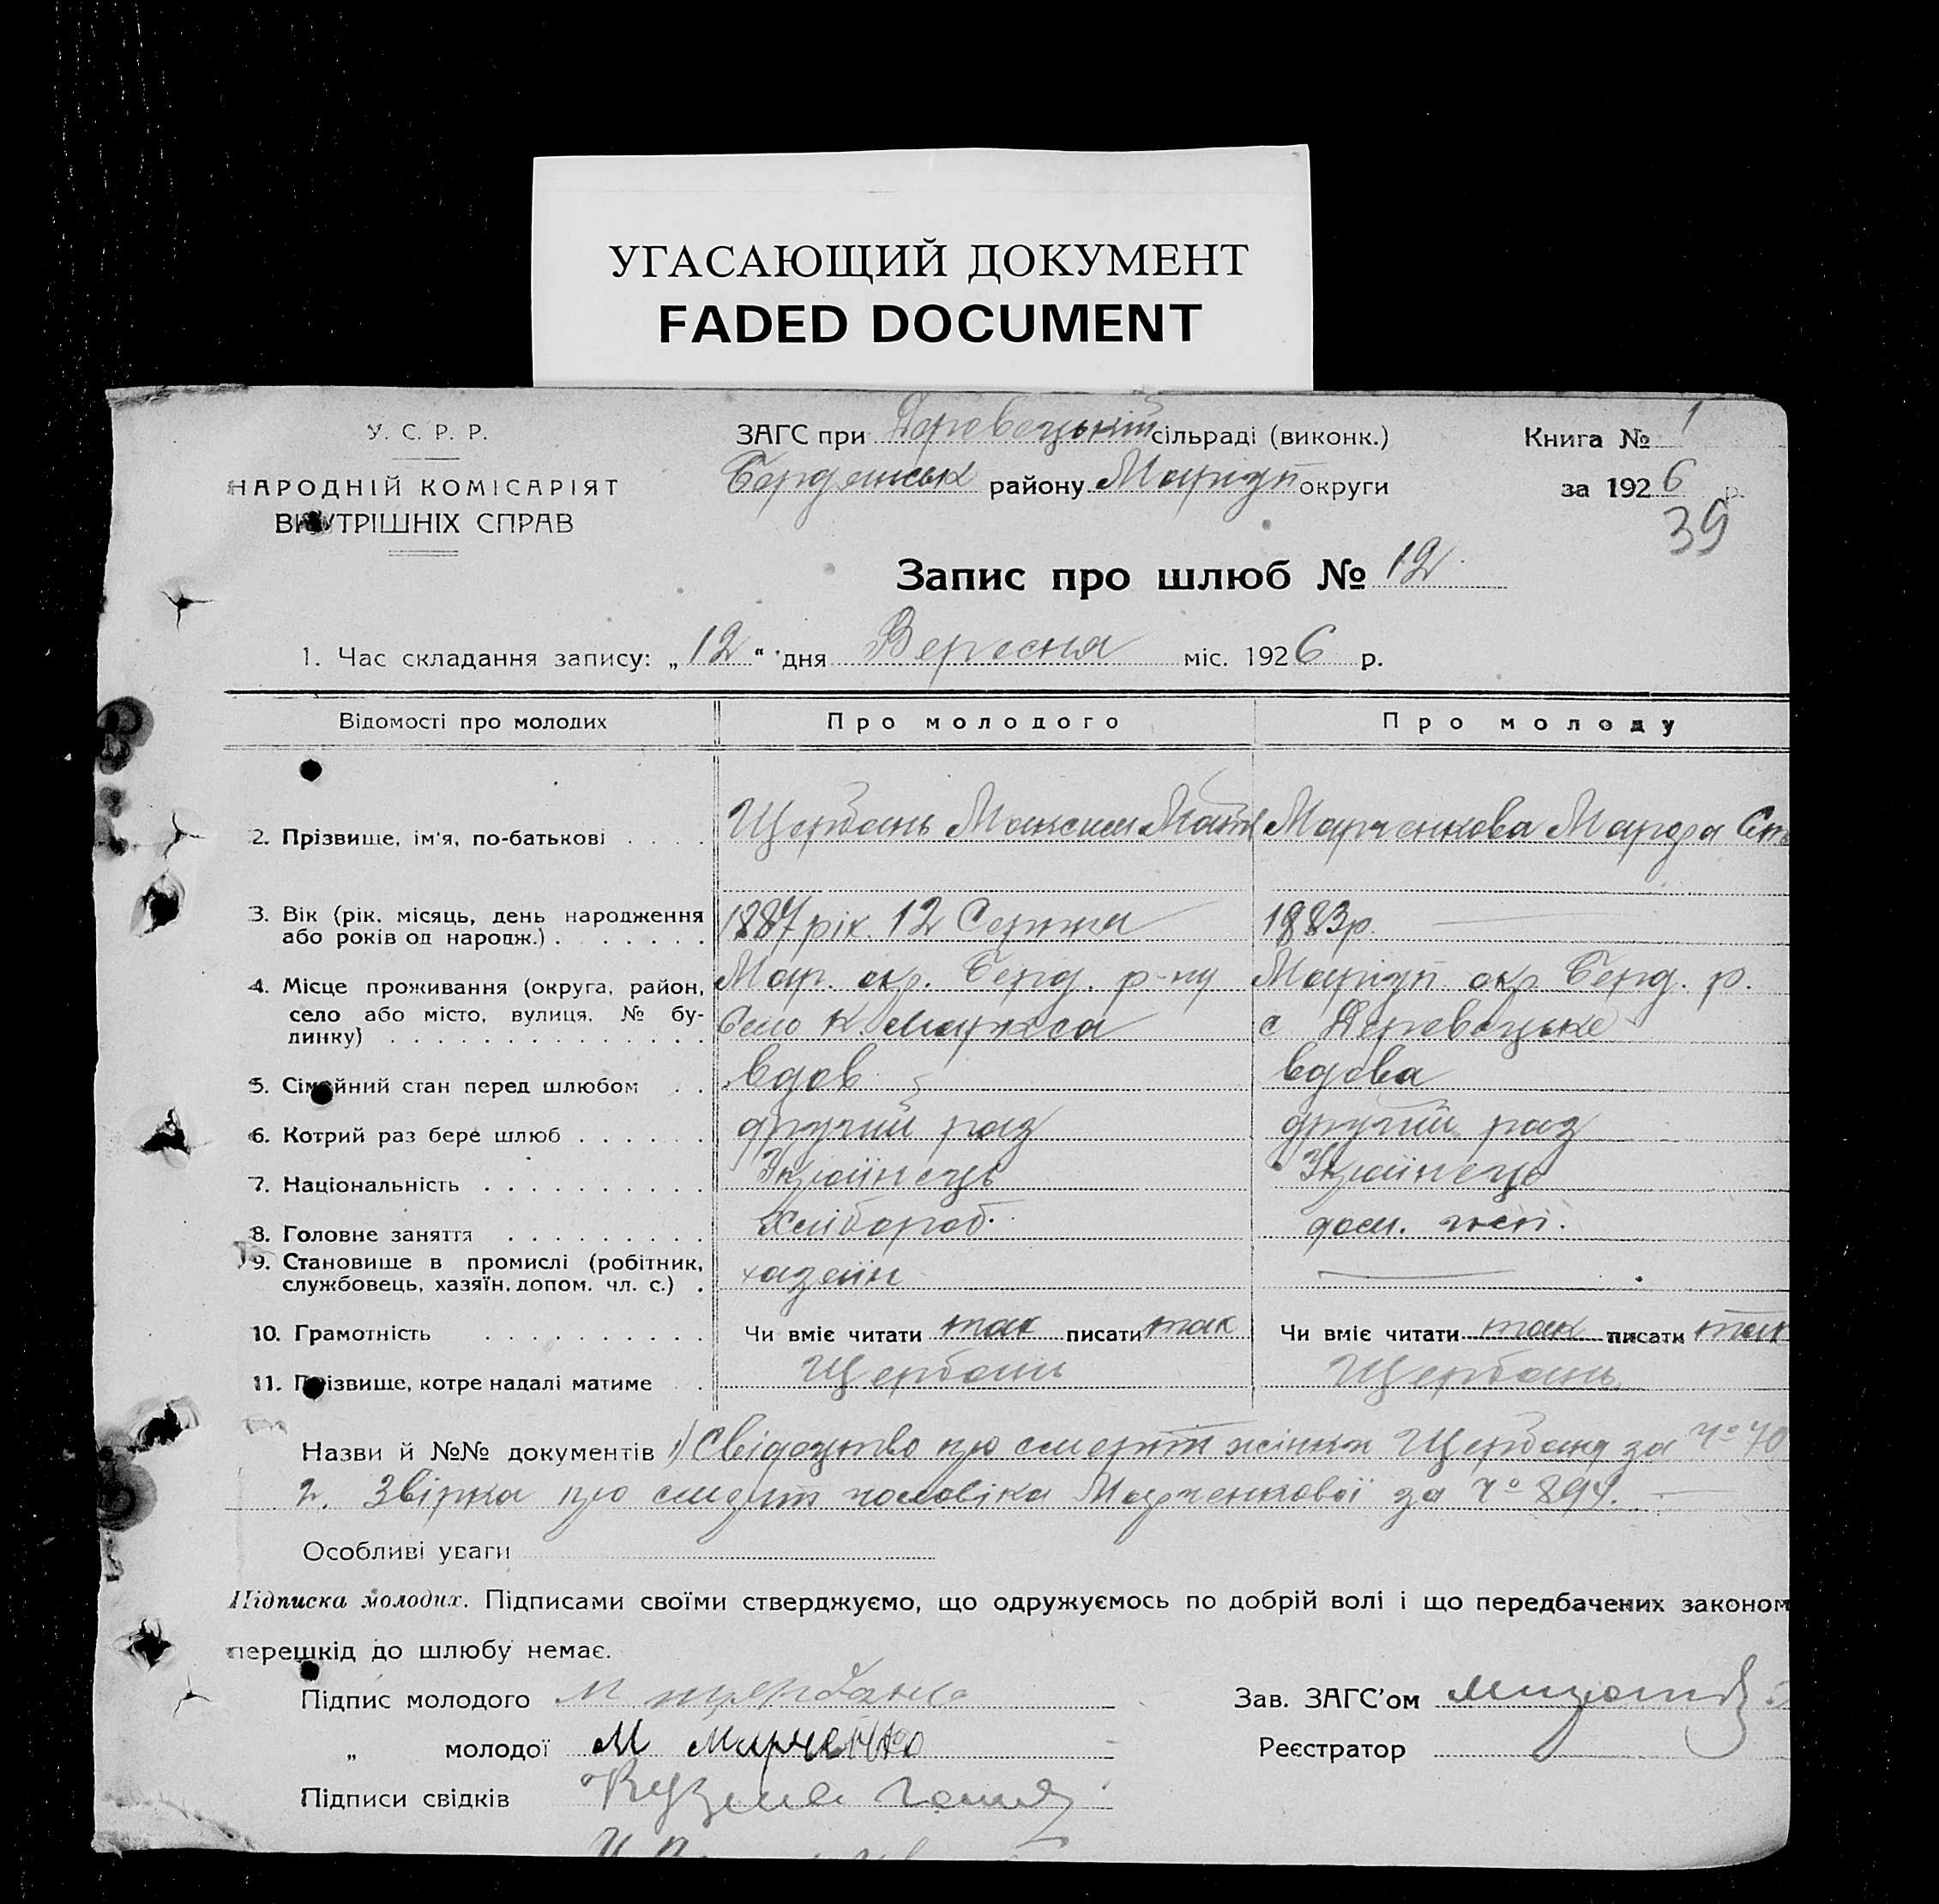 УГАСАЮЩИЙ ДОКУМЕНТ
FADED DOCUMENT
У. С. Р. Р.
НАРОДНІЙ КОМІСАРІЯТ
ВНУТРІШНІХ СПРАВ
ЗАГС при Деревецькій сільраді (виконк.)
Бердянськ району Маріуп округи
Книга № 1
за 1926 р.
39
Запис про шлюб № 12
1. Час складання запису: „12“ дня Вересня міс. 1926 р.
Відомості про молодих Про молодого Про молоду
2. Прізвище, ім'я, по-батькові Щербань Максим Матв Марченкова Марфа Сте
3. Вік (рік, місяць, день народження або років од народж.) 1887 рік. 12 Серпня 1883р.
4. Місце проживання (округа, район, Мар. окр. Берд. р-ну Маріуп окр Берд. р.
село або місто, вулиця, № будинку) Село К. Маркса с Деревецьке
5. Сімейний стан перед шлюбом вдов вдова
6. Котрий раз бере шлюб другий раз другий раз
7. Національність Україінець Україінець
8. Головне заняття Хлібороб. дом. госп.
9. Становище в промислі (робітник, службовець, хазяїн, допом. чл. с.) хазяїн
10. Грамотність Чи вміє читати так писати так Чи вміє читати так писати так
11. Прізвище, котре надалі матиме Щербань Щербань
Назви й №№ документів 1) Свідоцтво про смерть жінки Щербаня за № 70
2. Звірка про смерть чоловіка Марченкової за № 894.
Особливі уваги
Підписка молодих. Підписами своїми стверджуємо, що одружуємось по добрій волі і що передбачених законом
перешкід до шлюбу немає.
Підпис молодого М щербань Зав. ЗАГС'ом
„ молодої М Марченко Реєстратор
Підписи свідків Кузма